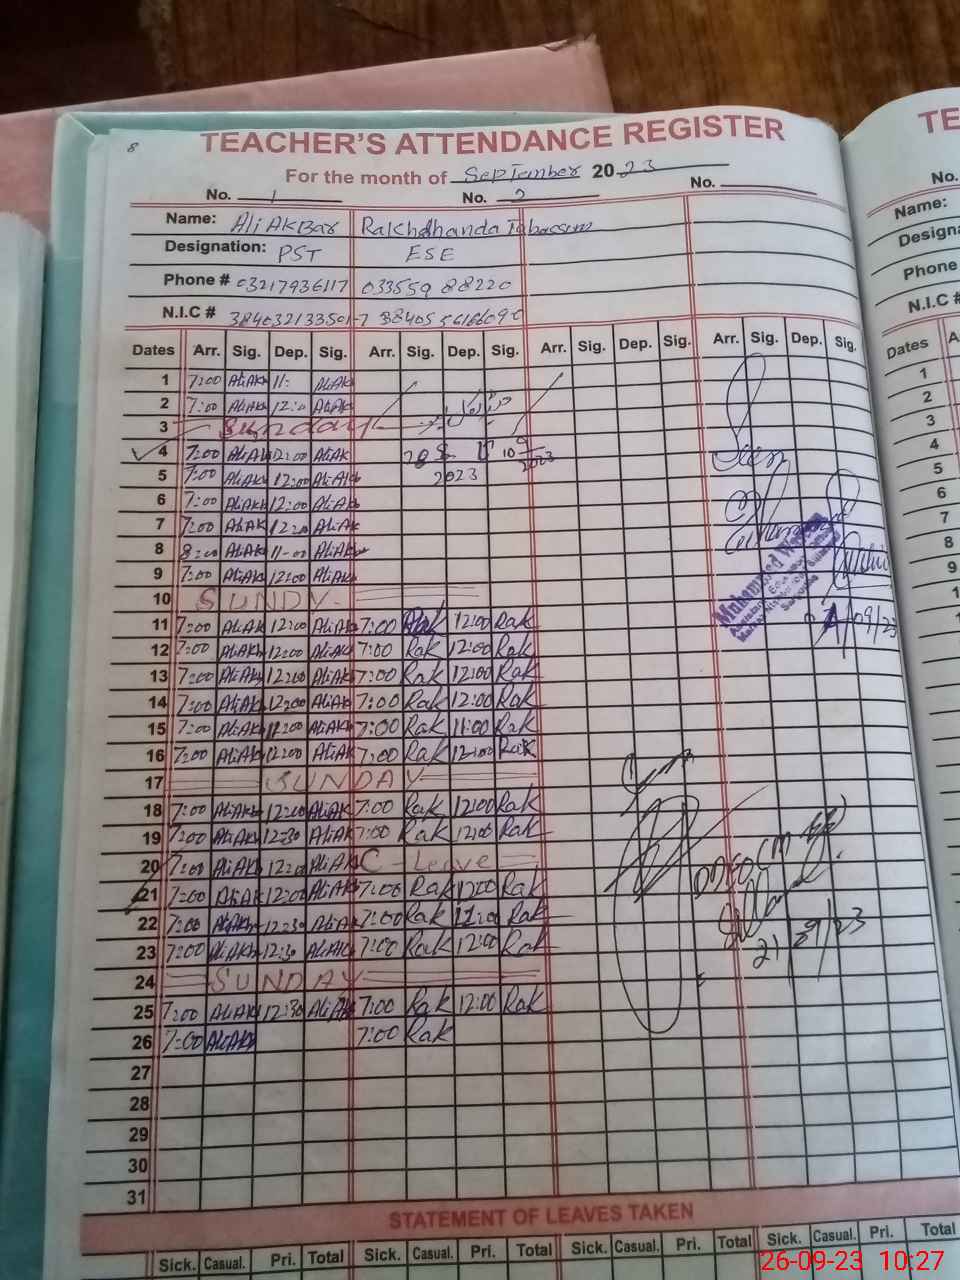 8
TEACHER'S ATTENDANCE REGISTER
For the month of September 2023
No. 1 No. 2 No.
Name: Ali AKBar Rakhdhanda Tabassum
Designation: PST ESE
Phone # 03217936117
N.I.C #
Dates Arr. Sig. Dep. Sig. Arr. Sig. Dep. Sig. Arr. Sig. Dep. Sig. Arr. Sig. Dep. Sig.
1 7:00 AliAK 11: AliAK
2 7:00 AliAK 12:0 AliAK
3 Sunday
4 7:00 AliAK 12:00 AliAK 28 8 10 9 2023 Seen
5 7:00 AliAK 12:00 AliAK 2023
6 7:00 AliAK 12:00 AliAK
7 7:00 AliAK 12:00 AliAK
8 8:00 AliAK 11-00 AliAK
9 7:00 AliAK 12:00 AliAK
10 SUNDY
11 7:00 AliAK 12:00 AliAK 7:00 Rak 12:00 Rak /09/23
12 7:00 AliAK 12:00 AliAK 7:00 Rak 12:00 Rak
13 7:00 AliAK 12:00 AliAK 7:00 Rak 12:00 Rak
14 7:00 AliAK 12:00 AliAK 7:00 Rak 12:00 Rak
15 7:00 AliAK 11:00 AliAK 7:00 Rak 11:00 Rak
16 7:00 AliAK 12:00 AliAK 7:00 Rak 12:00 Rak
17 SUNDAY
18 7:00 AliAK 12:00 AliAK 7:00 Rak 12:00 Rak
19 7:00 AliAK 12:30 AliAK 7:00 Rak 12:00 Rak
20 7:00 AliAK 12:00 AliAK C - Leave
21 7:00 AliAK 12:00 AliAK 7:00 Rak 12:00 Rak
22 7:00 AliAK 12:30 AliAK 7:00 Rak Rak
23 7:00 AliAK 12:30 AliAK 7:00 Rak 12:00 Rak 21/09/23
24 SUNDAY
25 7:00 AliAK 12:30 AliAK 7:00 Rak 12:00 Rak
26 7:00 AliAK 7:00 Rak
27
28
29
30
31
STATEMENT OF LEAVES TAKEN
Sick. Casual. Pri. Total Sick. Casual. Pri. Total Sick. Casual. Pri. Total Sick. Casual. Pri. Total
26-09-23 10:27
TE
No.
Name:
Designa
Phone
N.I.C #
Dates A
1
2
3
4
5
6
7
8
9